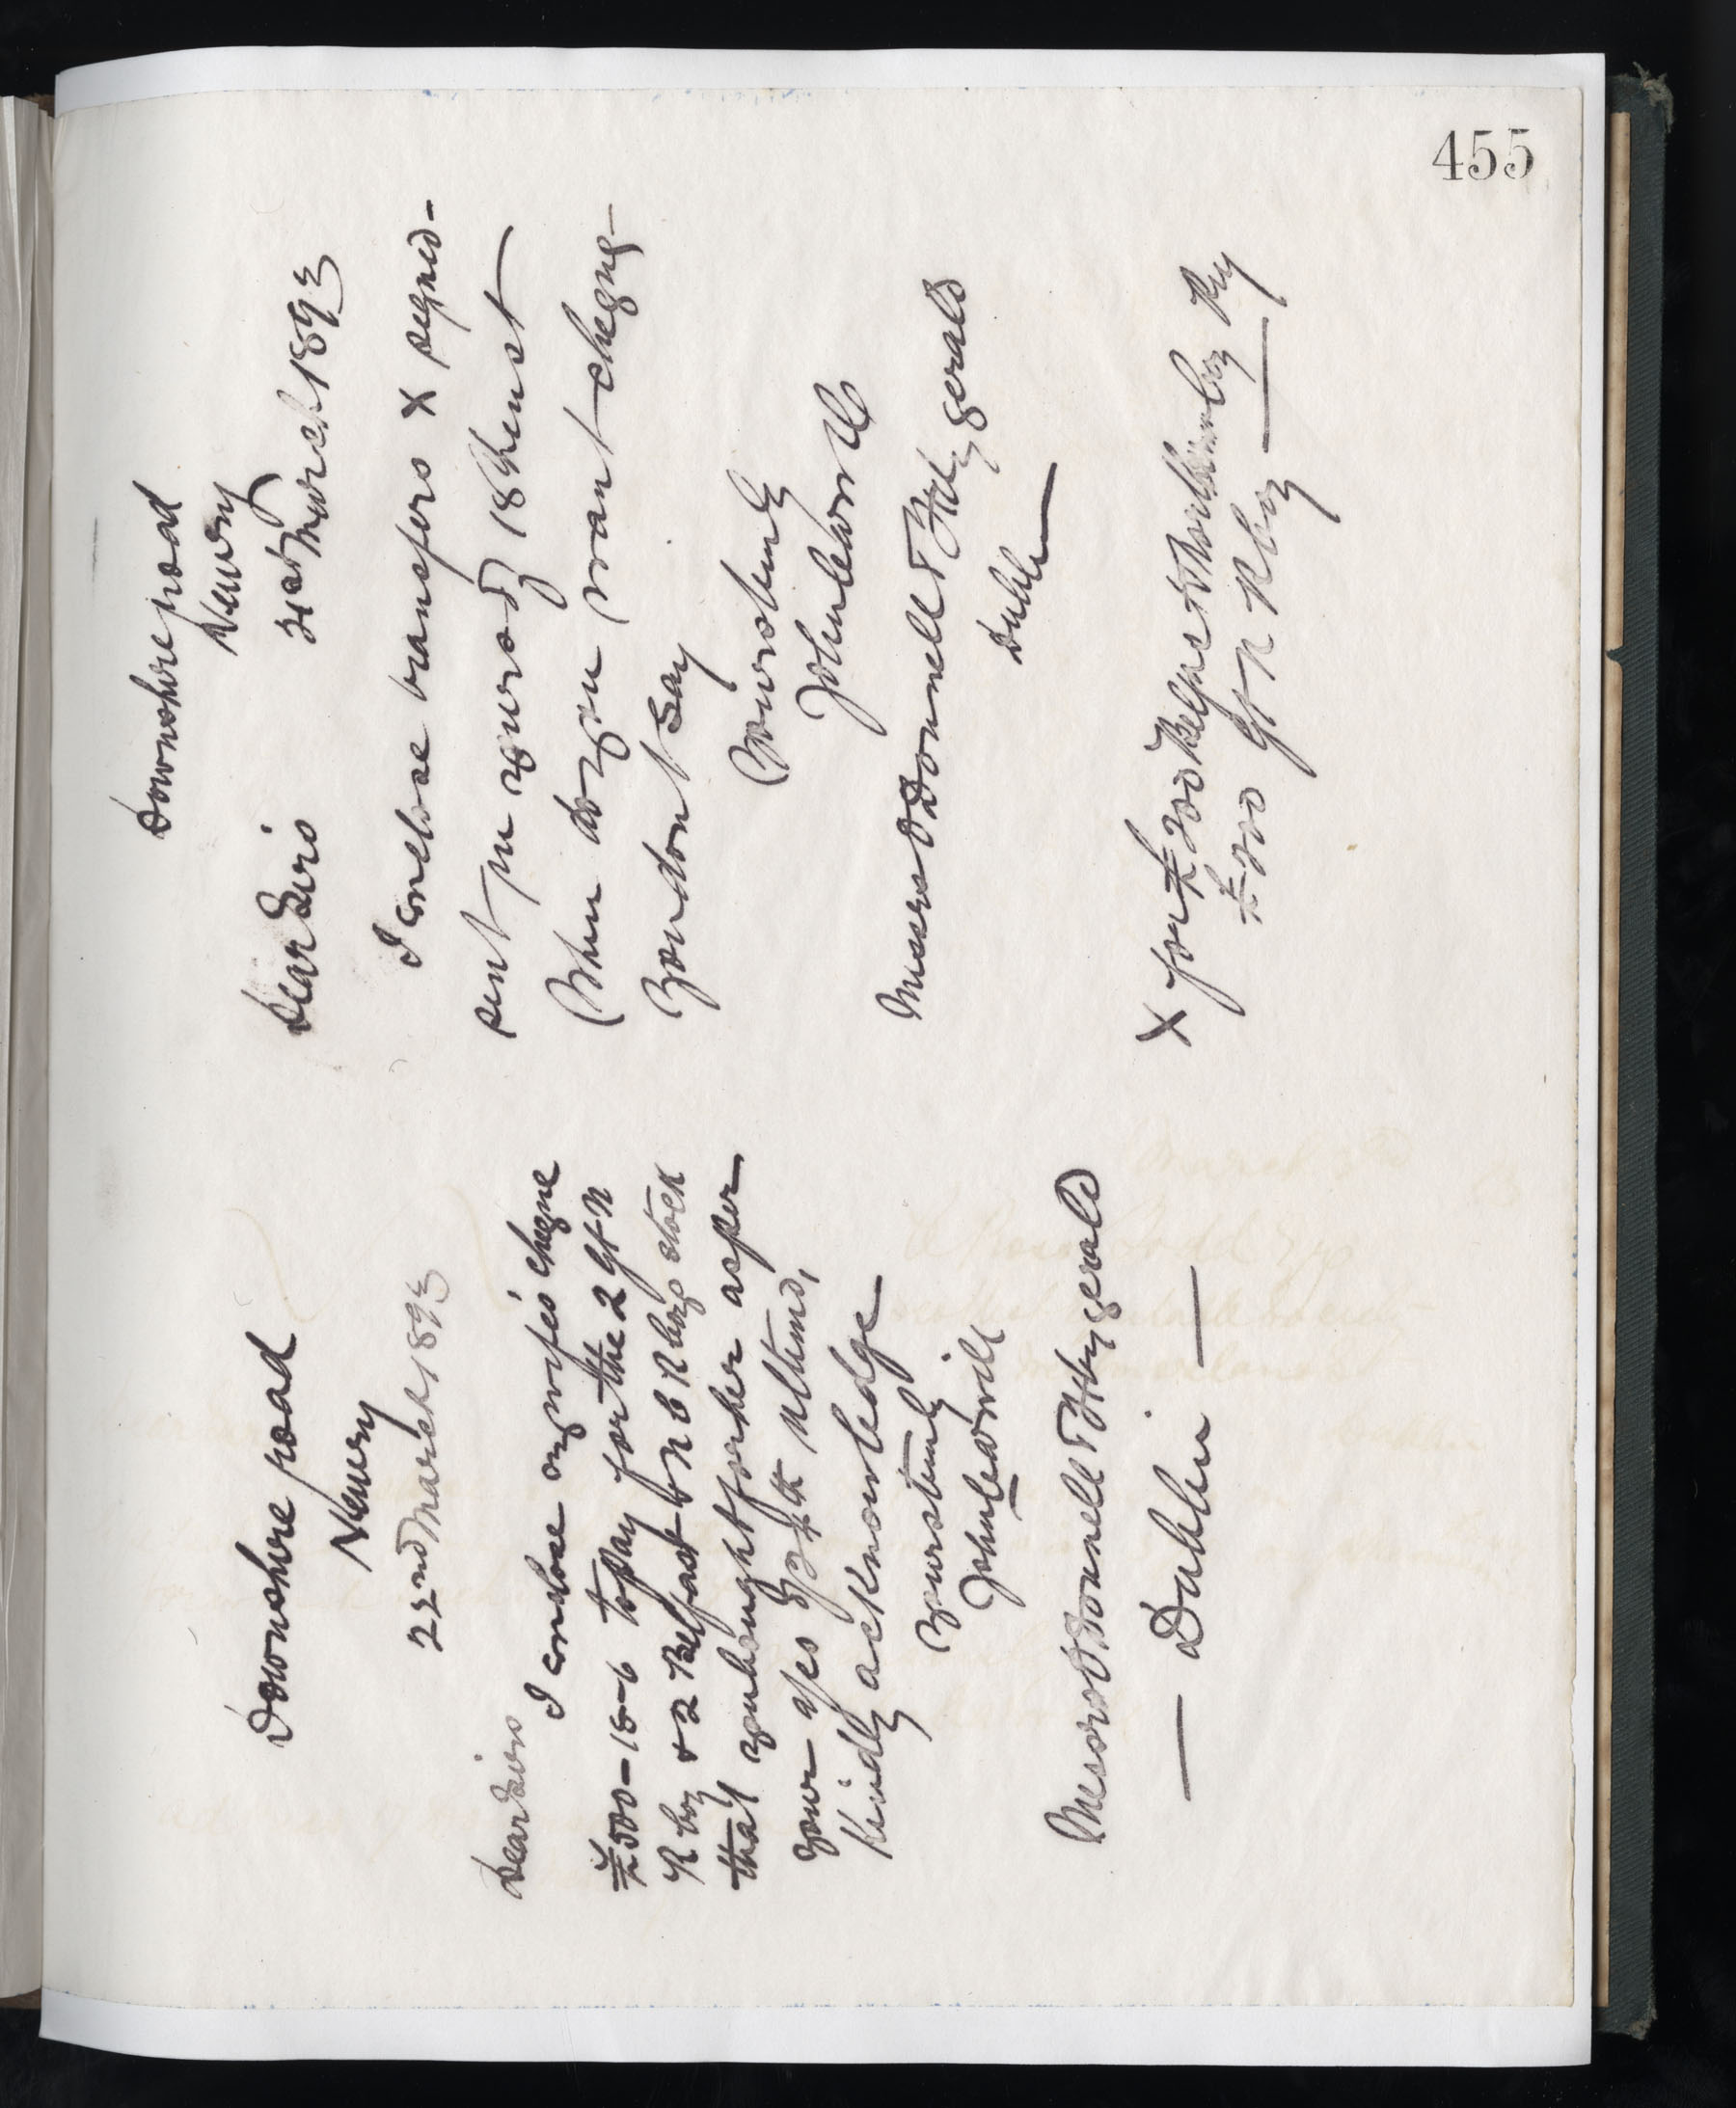 455
Downshire road
Newry
22nd March 1893
Dear Sirs
I enclose my wife's cheque
£500-18-6 to pay for the 2 Gt N
R Coy & 2 Belfast & N C R Coys stock
that you bought for her as per
your a/cs of 24th ultimo,
Kindly acknowledge
yours truly
John
Messrs O Donnell & Fitzgerald
— Dublin —
Downshire road
Newry
21st March 1893
Dear Sirs
I enclose transfers X signed -
sent me yours of 18th inst
When do you want cheque -
You dont say
Yours truly
John
Messrs O Donnell & Fitzgerald
Dublin —
X for £200 Belfast & Northern Coy Ry
£200 Gt N R Coy —